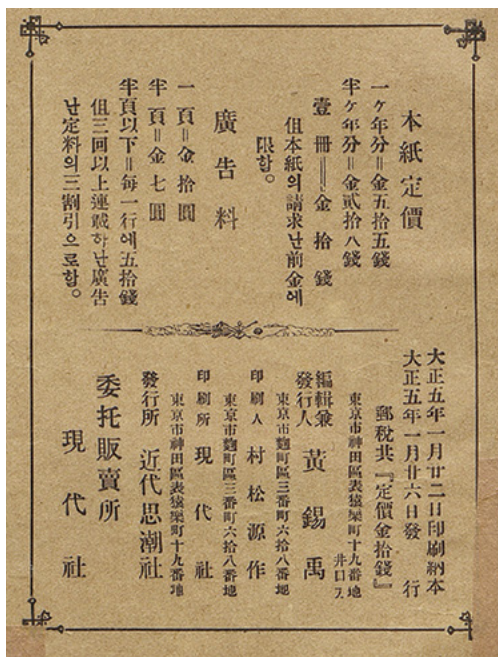 本紙定價
一ケ年分＝金五拾五錢
半ケ年分＝金貳拾八錢
壹冊＝金拾錢
但本紙의請求난前金에
限함。
廣告料
一頁＝金拾圓
半頁＝金七圓
半頁以下＝每一行에五拾錢
但三回以上連載하난廣告
난定料의三割引으로함。
大正五年一月廿二日印刷納本
大正五年一月廿六日發行
郵稅共『定價金拾錢』
東京市神田區表猿樂町十九番地
井口方
編輯兼
發行人 黃錫禹
東京市麴町區三番町六拾八番地
印刷人 村松源作
東京市麴町區三番町六拾八番地
印刷所 現代社
東京市神田區表猿樂町十九番地
發行所 近代思潮社
委托販賣所
現代社